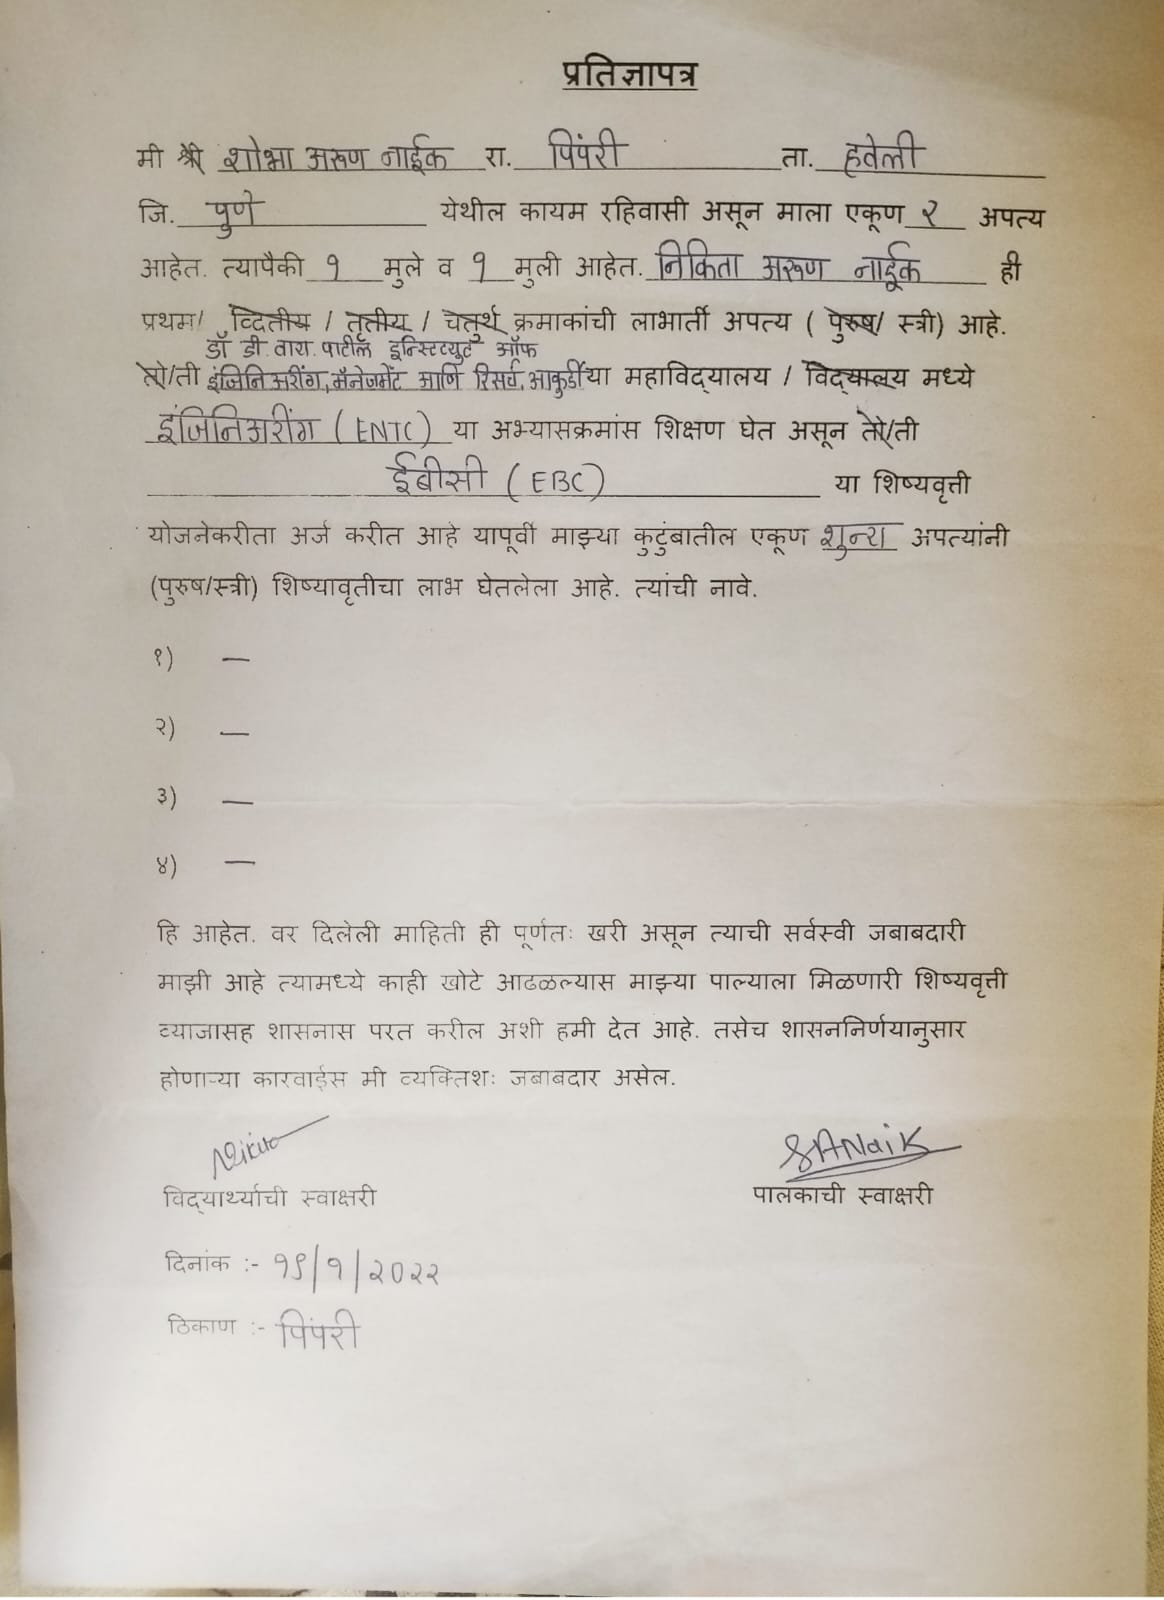 प्रतिज्ञापत्र
मी श्री शोभा अरुण नाईक रा. पिंपरी ता. हवेली
जि. पुणे येथील कायम रहिवासी असून माला एकूण २ अपत्य
आहेत. त्यापैकी १ मुले व १ मुली आहेत. निकिता अरुण नाईक ही
प्रथम/ व्दितीय / तृतीय / चेतुर्थ क्रमाकांची लाभार्ती अपत्य ( पुरुष/ स्त्री) आहे.
डॉ डी. वाय. पाटील इन्स्टिट्युट ऑफ
तो/ती इंजिनिअरींग, मॅनेजमेंट आणि रिसर्च, आकुर्डी या महाविद्यालय / विद्यालय मध्ये
इंजिनिअरींग (ENTC) या अभ्यासक्रमांस शिक्षण घेत असून तो/ती
ईबीसी (EBC) या शिष्यवृत्ती
योजनेकरीता अर्ज करीत आहे यापूर्वी माझ्या कुटुंबातील एकूण शुन्य अपत्यांनी
(पुरुष/स्त्री) शिष्यावृतीचा लाभ घेतलेला आहे. त्यांची नावे.
१) —
२) —
३) —
४) —
हि आहेत. वर दिलेली माहिती ही पूर्णतः खरी असून त्याची सर्वस्वी जबाबदारी
माझी आहे त्यामध्ये काही खोटे आढळल्यास माझ्या पाल्याला मिळणारी शिष्यवृत्ती
व्याजासह शासनास परत करील अशी हमी देत आहे. तसेच शासननिर्णयानुसार
होणाऱ्या कारवाईस मी व्यक्तिशः जबाबदार असेल.
Nikita SANaik
विद्यार्थ्याची स्वाक्षरी पालकाची स्वाक्षरी
दिनांक :- १९/१/२०२२
ठिकाण :- पिंपरी